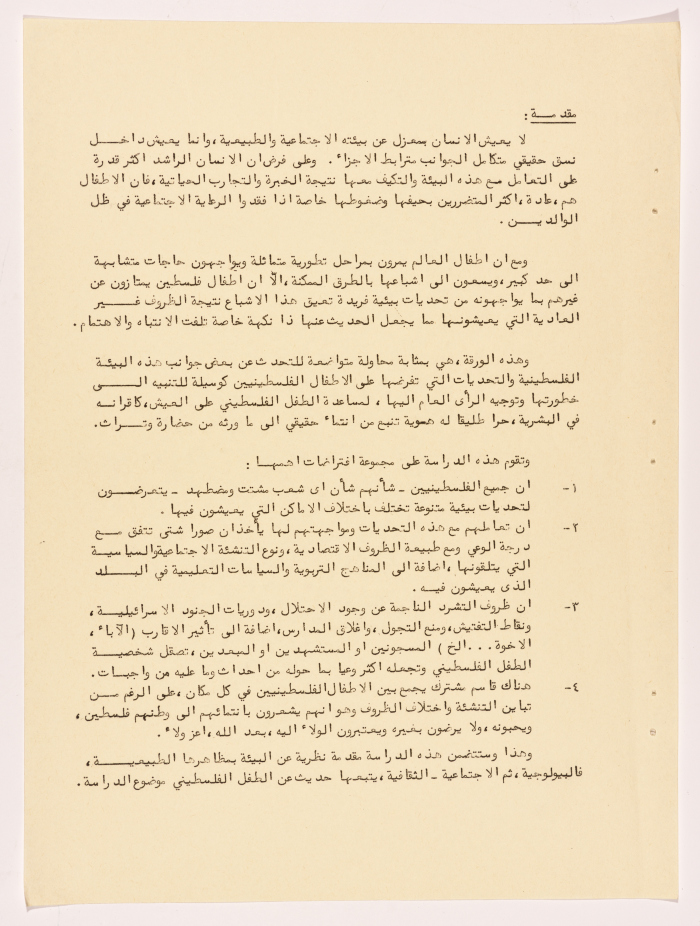 مقدمة :
لا يعيش الانسان بمعزل عن بيئته الاجتماعية والطبيعية ، وانما يعيش داخل
نسق حقيقي متكامل الجوانب مترابط الاجزاء . وعلى فرض ان الانسان الراشد اكثر قدرة
على التعامل مع هذه البيئة والتكيف معها نتيجة الخبرة والتجارب الحياتية ، فان الاطفال
هم ، عادة ، اكثر المتضررين بحيفها وضغوطها خاصة اذا فقدوا الرعاية الاجتماعية في ظل
الوالدين .
ومع ان اطفال العالم يمرون بمراحل تطورية متماثلة ويواجهون حاجات متشابهة
الى حد كبير ، ويسعون الى اشباعها بالطرق الممكنة ، الاّ ان اطفال فلسطين يمتازون عن
غيرهم بما يواجهونه من تحديات بيئية فريدة تعيق هذا الاشباع نتيجة الظروف غير
العادية التي يعيشونها مما يجعل الحديث عنها ذا نكهة خاصة تلفت الانتباه والاهتمام .
وهذه الورقة ، هي بمثابة محاولة متواضعة للتحدث عن بعض جوانب هذه البيئة
الفلسطينية والتحديات التي تفرضها على الاطفال الفلسطينيين كوسيلة للتنبيه الى
خطورتها وتوجيه الرأى العام اليها ، لمساعدة الطفل الفلسطيني على العيش ، كاقرانه
في البشرية ، حرا طليقا له هوية تنبع من انتماء حقيقي الى ما ورثه من حضارة وتراث .
وتقوم هذه الدراسة على مجموعة افتراضات اهمها :
١- ان جميع الفلسطينيين - شأنهم شأن اى شعب مشتت ومضطهد - يتعرضون
لتحديات بيئية متنوعة تختلف باختلاف الاماكن التي يعيشون فيها .
٢- ان تعاملهم مع هذه التحديات ومواجهتهم لها يأخذان صورا شتى تتفق مع
درجة الوعي ومع طبيعة الظروف الاقتصادية ، ونوع التنشئة الاجتماعية والسياسية
التي يتلقونها ، اضافة الى المناهج التربوية والسياسات التعليمية في البلد
الذى يعيشون فيه .
٣- ان ظروف التشرد الناجمة عن وجود الاحتلال ، ودوريات الجنود الاسرائيلية ،
ونقاط التفتيش ، ومنع التجول ، واغلاق المدارس ، اضافة الى تأثير الاقارب ( الآباء ،
الاخوة ... الخ ) المسجونين او المستشهدين او المبعدين ، تصقل شخصية
الطفل الفلسطيني وتجعله اكثر وعيا بما حوله من احداث وما عليه من واجبات .
٤- هناك قاسم مشترك يجمع بين الاطفال الفلسطينيين في كل مكان ، على الرغم من
تباين التنشئة واختلاف الظروف وهو انهم يشعرون بانتمائهم الى وطنهم فلسطين ،
ويحبونه ، ولا يرضون بغيره ويعتبرون الولاء اليه ، بعد الله ، اعز ولاء .
وهذا وستتضمن هذه الدراسة مقدمة نظرية عن البيئة بمظاهرها الطبيعية ،
فالبيولوجية ، ثم الاجتماعية - الثقافية ، يتبعها حديث عن الطفل الفلسطيني موضوع الدراسة .